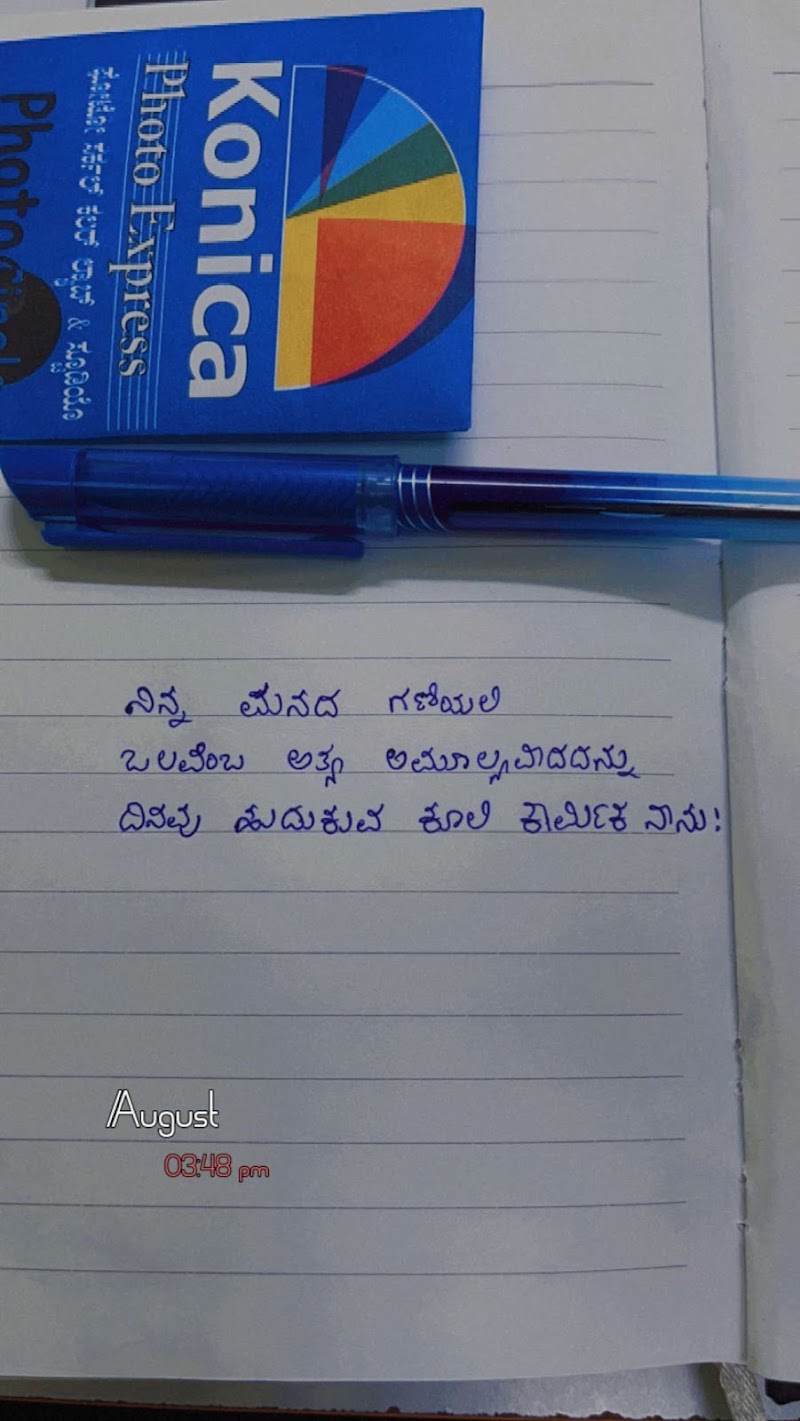 Konica
Photo Express
ಫೋಟೋ ಸರ್ಕಲ್ ಕಲರ್ ಲ್ಯಾಬ್ & ಸ್ಟೂಡಿಯೊ
Photo
ನಿನ್ನ ಮನದ ಗಣಿಯಲಿ
ಒಲವೆಂಬ ಅತ್ಯ ಅಮೂಲ್ಯವಾದದನ್ನು
ದಿನವು ಹುದುಕುವ ಕೂಲಿ ಕಾರ್ಮಿಕ ನಾನು!
August
03:48 pm